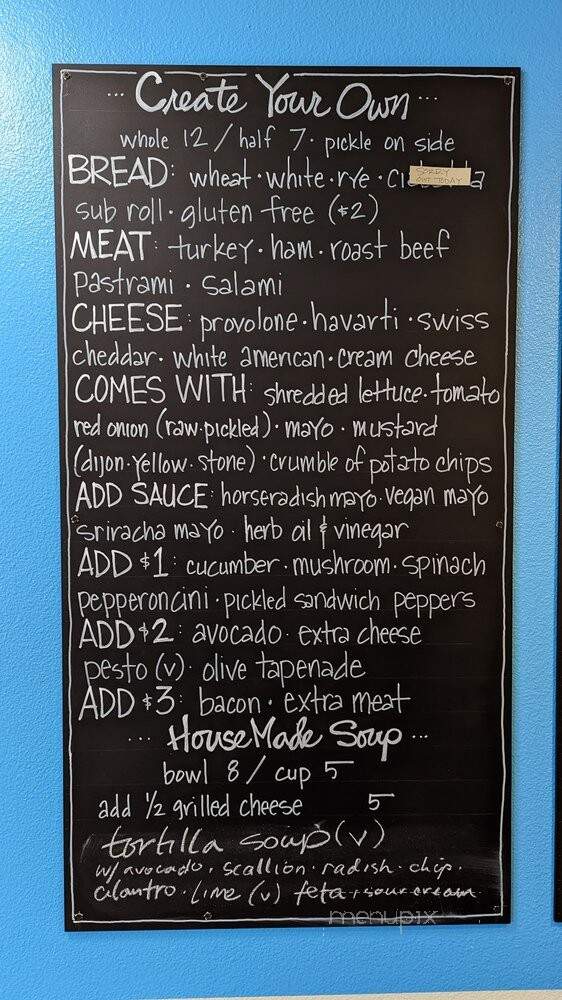 ... Create Your Own ...
whole 12 / half 7 · pickle on side
BREAD: wheat · white · rye ·
SORRY
OUT TODAY
sub roll · gluten free (+$2)
MEAT: turkey · ham · roast beef
pastrami · salami
CHEESE: provolone · havarti · swiss
cheddar · white american · cream cheese
COMES WITH: shredded lettuce · tomato
red onion (raw · pickled) · mayo · mustard
(dijon · yellow · stone) · crumble of potato chips
ADD SAUCE: horseradish mayo · vegan mayo
sriracha mayo · herb oil & vinegar
ADD $1: cucumber · mushroom · spinach
pepperoncini · pickled sandwich peppers
ADD $2: avocado · extra cheese
pesto (v) · olive tapenade
ADD $3: bacon · extra meat
... HouseMade Soup ...
bowl 8 / cup 5
add ½ grilled cheese 5
tortilla soup (v)
w/ avocado · scallion · radish · chip ·
cilantro · lime (v) feta · sour cream
menupix